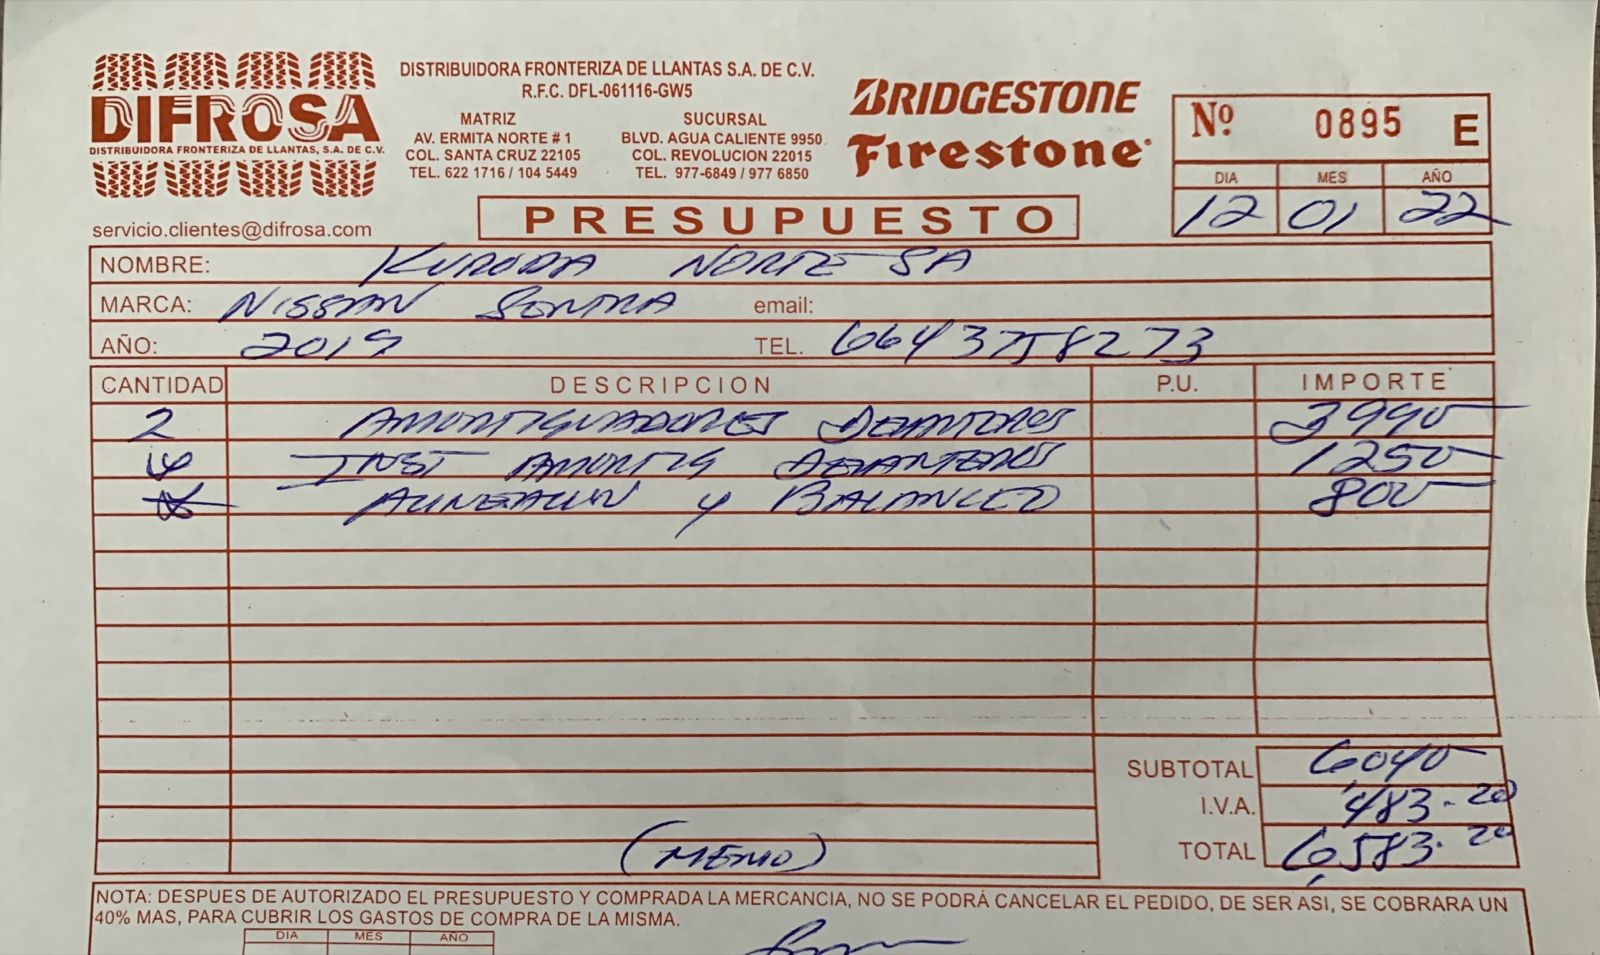 DIFROSA
DISTRIBUIDORA FRONTERIZA DE LLANTAS, S.A. DE C.V.
servicio.clientes@difrosa.com
DISTRIBUIDORA FRONTERIZA DE LLANTAS S.A. DE C.V.
R.F.C. DFL-061116-GW5
MATRIZ
AV. ERMITA NORTE # 1
COL. SANTA CRUZ 22105
TEL. 622 1716 / 104 5449
SUCURSAL
BLVD. AGUA CALIENTE 9950
COL. REVOLUCION 22015
TEL. 977-6849 / 977 6850
BRIDGESTONE
Firestone
Nº 0895 E
DIA MES AÑO
12 01 22
PRESUPUESTO
NOMBRE: KURODA NORTE SA
MARCA: NISSAN SENTRA email:
AÑO: 2019 TEL. 664 3758273
CANTIDAD DESCRIPCION P.U. IMPORTE
2 AMORTIGUADORES DELANTEROS 3990
INST AMORTIG DELANTEROS 1250
ALINEACION Y BALANCEO 800
SUBTOTAL 6040
I.V.A. 483.20
TOTAL 6,583.20
(MEMO)
NOTA: DESPUES DE AUTORIZADO EL PRESUPUESTO Y COMPRADA LA MERCANCIA, NO SE PODRÁ CANCELAR EL PEDIDO, DE SER ASI, SE COBRARA UN
40% MAS, PARA CUBRIR LOS GASTOS DE COMPRA DE LA MISMA.
DIA MES AÑO